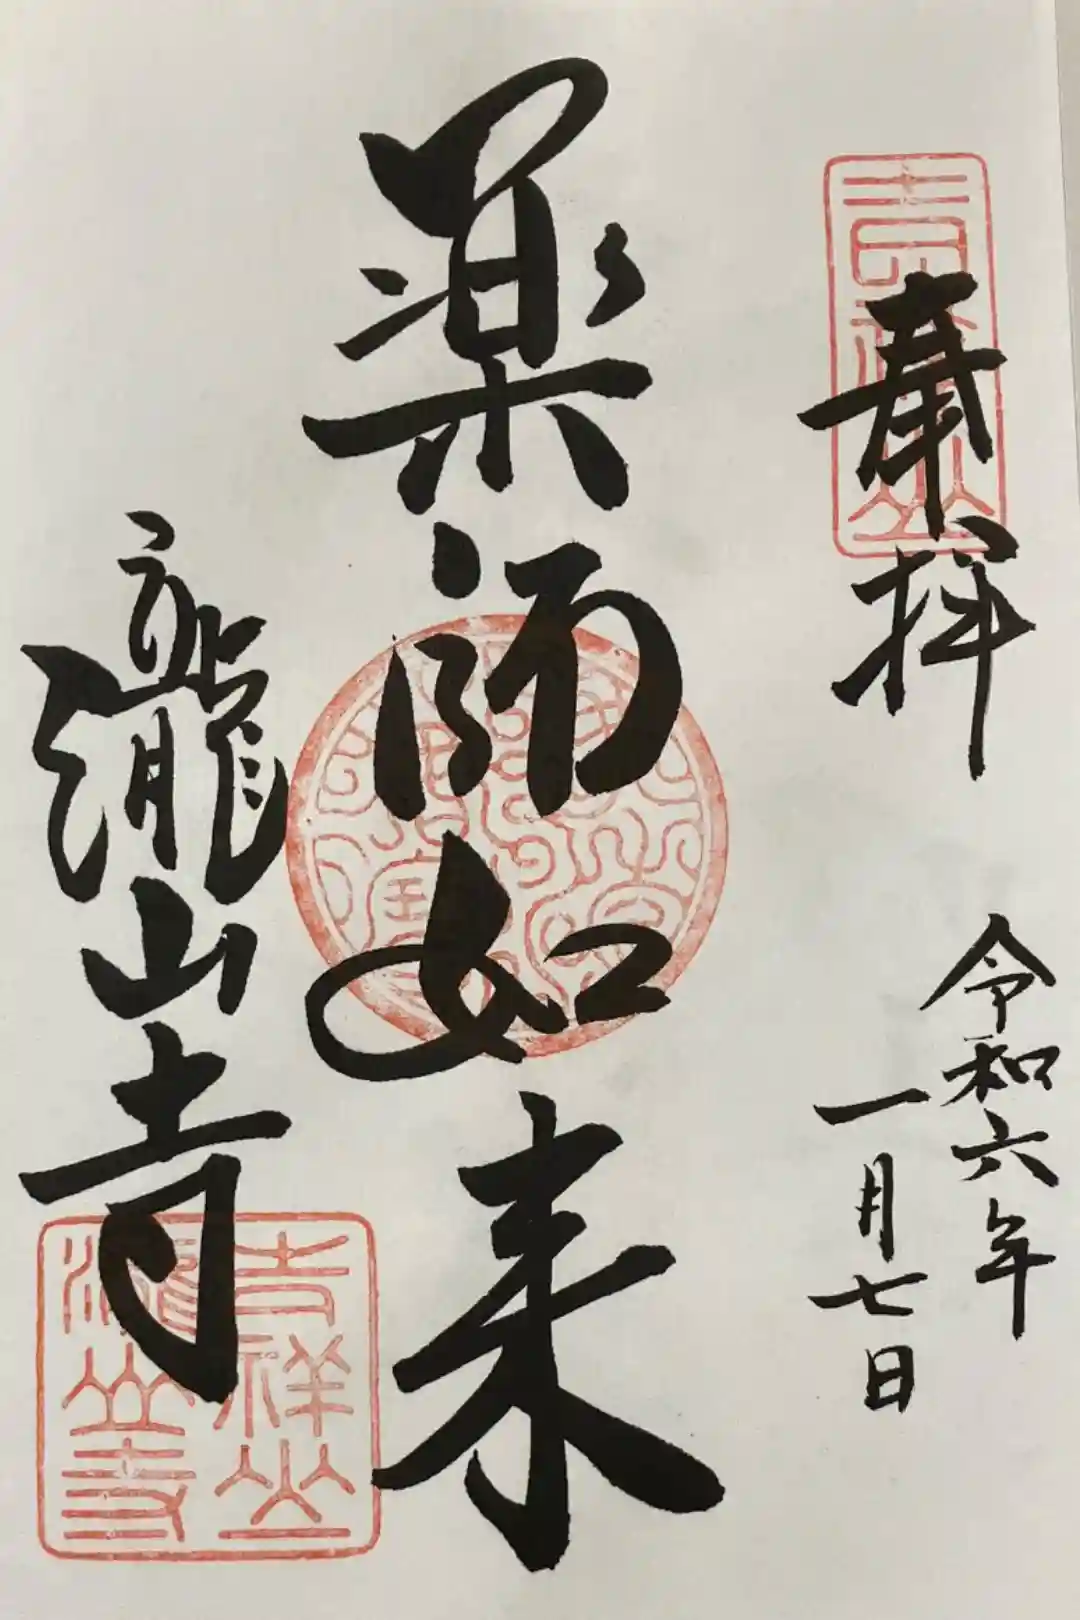 奉拝
令和六年
一月七日
薬師如来
瀧山寺
吉祥山
吉祥山
瀧山寺